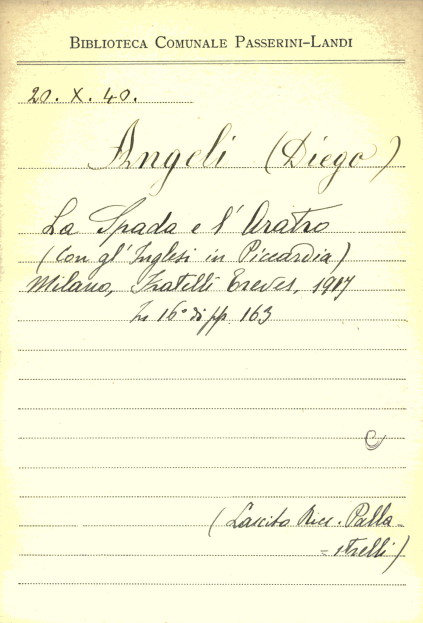 BIBLIOTECA COMUNALE PASSERINI-LANDI
20. X. 40.
Angeli (Diego)
La Spada e l'Aratro
(Con gl'Inglesi in Piccardia)
Milano, Fratelli Treves, 1917
In 16° di pp. 163
C
(Lascito Ricc. Palla-
=strelli)